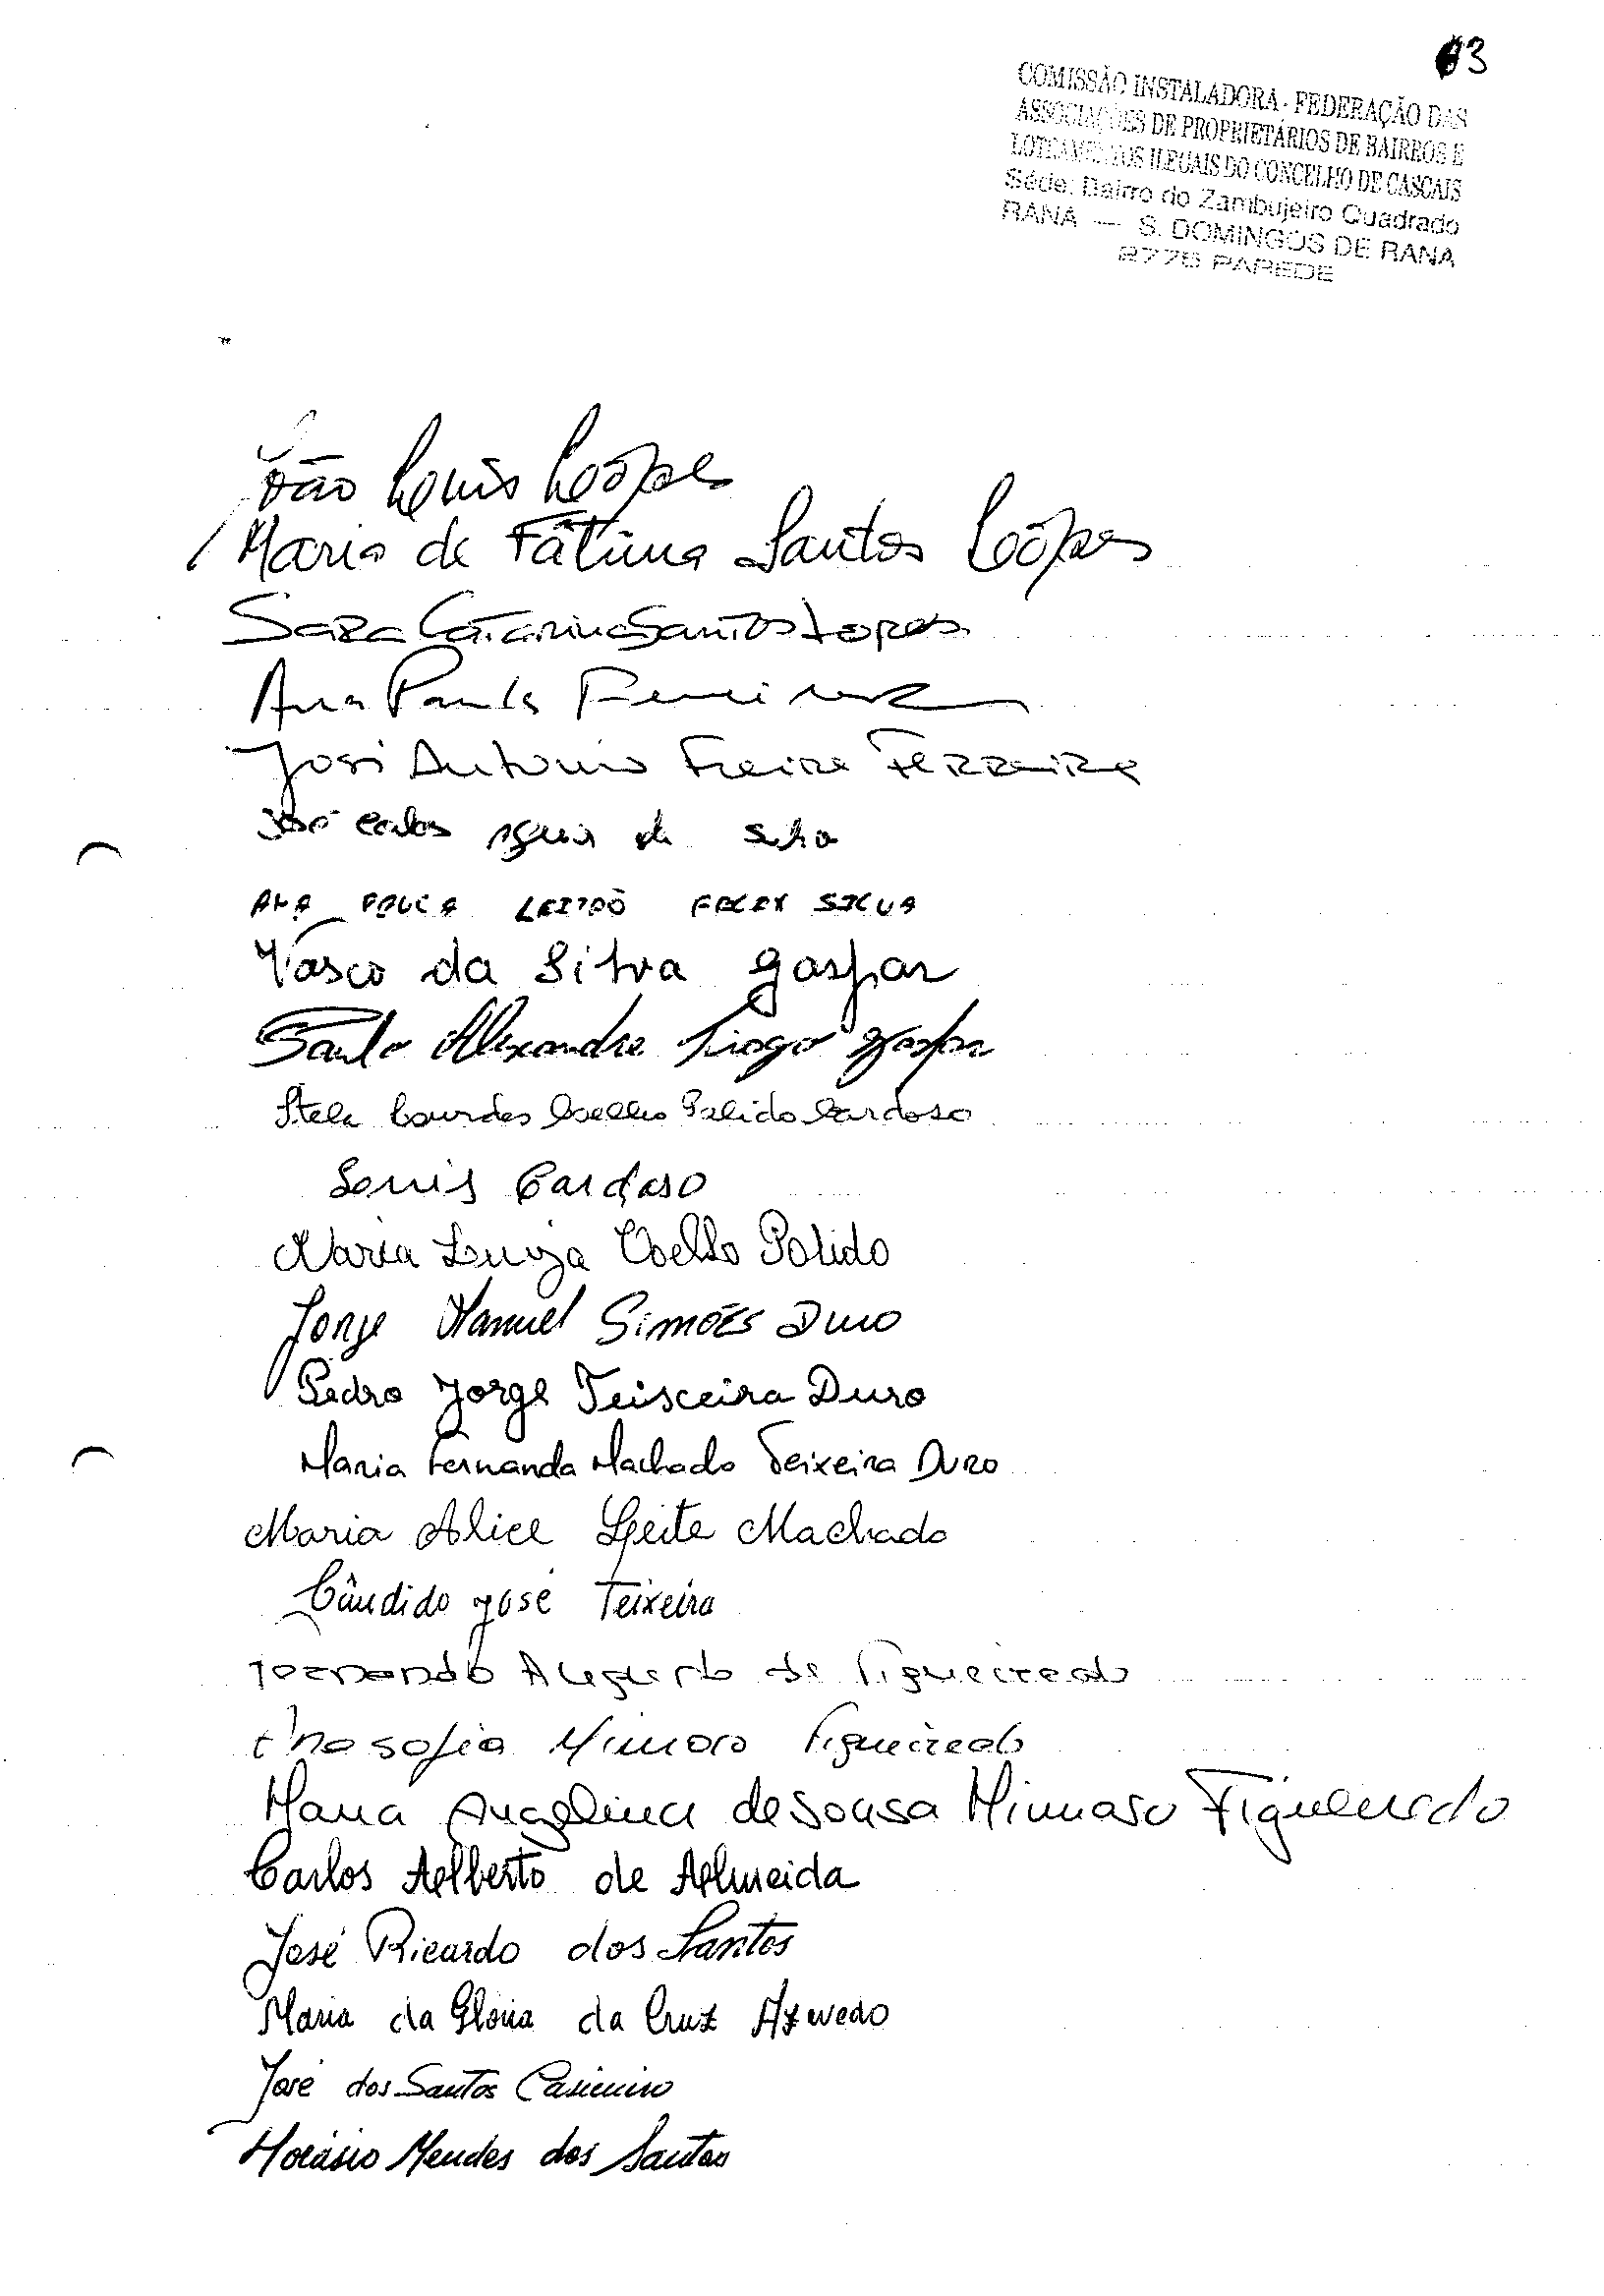 3
COMISSÃO INSTALADORA - FEDERAÇÃO DAS
ASSOCIAÇÕES DE PROPRIETÁRIOS DE BAIRROS E
LOTEAMENTOS ILEGAIS DO CONCELHO DE CASCAIS
Séde: Bairro do Zambujeiro Quadrado
RANA — S. DOMINGOS DE RANA
2775 PAREDE
João Luis Lopes
Maria de Fátima Santos Lopes
Sara Catarina Santos Lopes
Ana Paula Ferreira
José Antonio Freire Ferreira
José Carlos Aguiar da Silva
ANA PAULA LEITÃO FELEX SILVA
Vasco da Silva Gaspar
Paulo Alexandre Tiago Gaspar
Stela Lourdes Coelho Polido Cardoso
Luis Cardoso
Maria Luiza Coelho Polido
Jorge Manuel Simões Duro
Pedro Jorge Teisceira Duro
Maria Fernanda Machado Teixeira Duro
Maria Alice Leite Machado
Cândido José Teixeira
Fernando Augusto de Figueiredo
Ana Sofia Mimoso Figueiredo
Maria Angelina de Sousa Mimoso Figueiredo
Carlos Alberto de Almeida
José Ricardo dos Santos
Maria da Glória da Cruz Azevedo
José dos Santos Casimiro
Horásio Mendes dos Santos